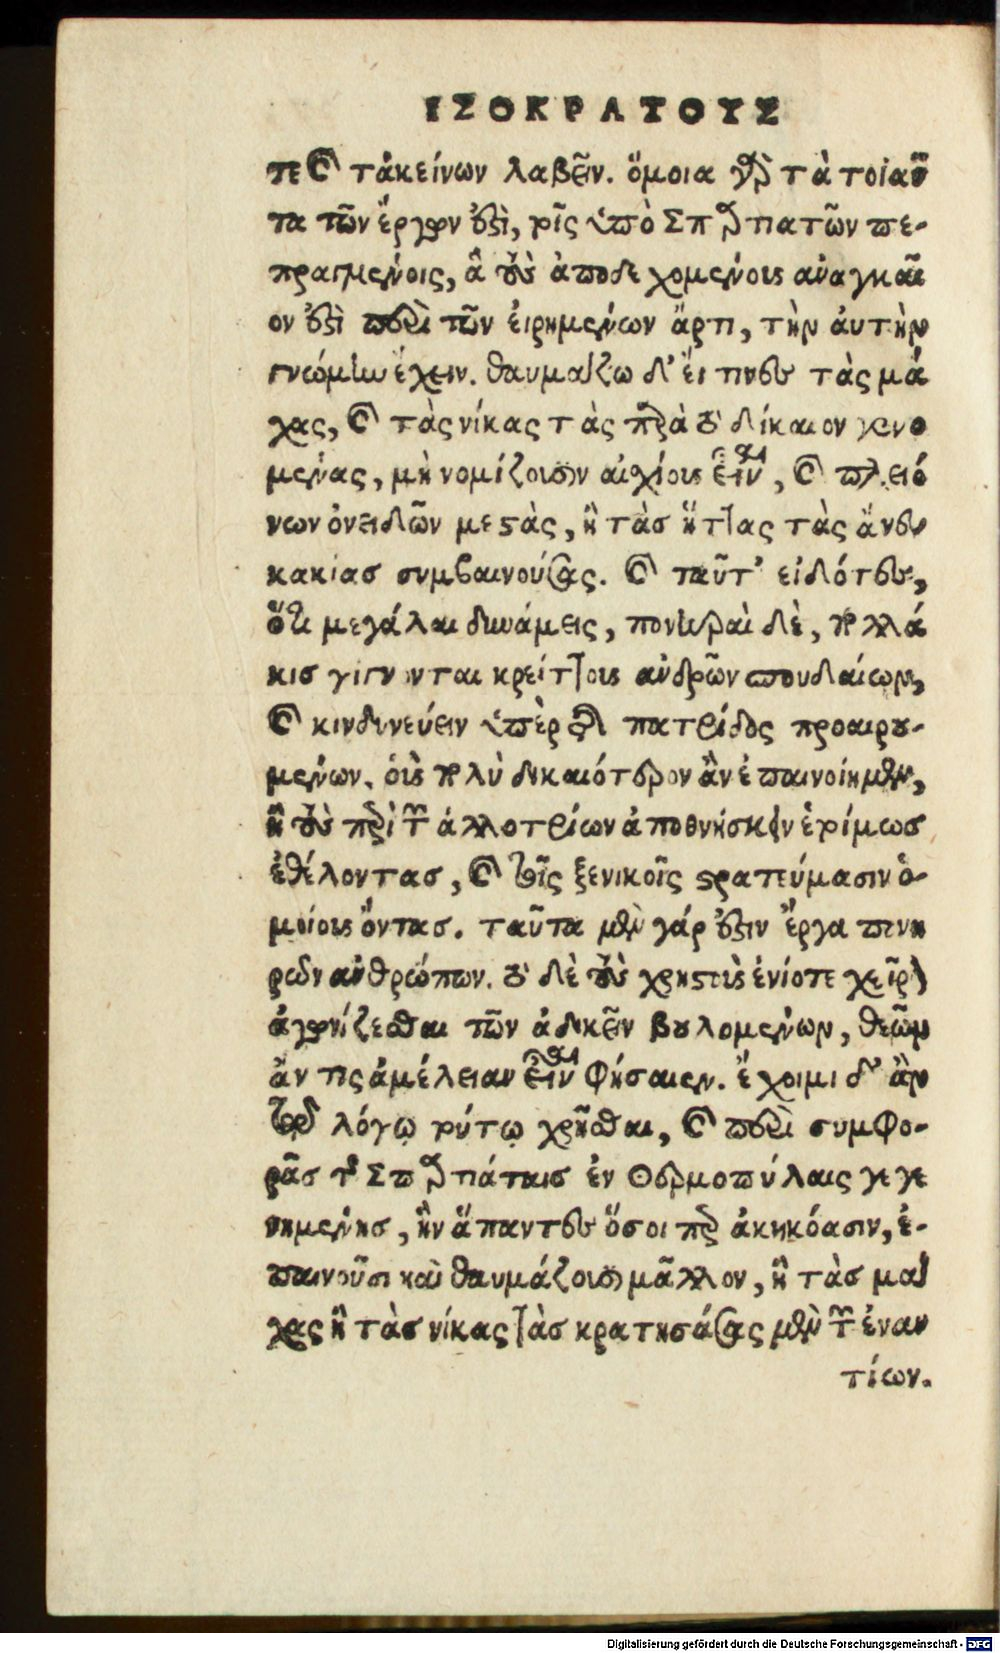 ΙΣΟΚΡΑΤΟΥΣ
τε καὶ τἀκείνων λαβεῖν. ὅμοια γὰρ τὰ τοιαῦ
τα τῶν ἔργων ἐστὶ, τοῖς ὑπὸ Σπαρτιατῶν πε-
πραγμένοις, ἃ τοὺς ἀποδεχομένους ἀναγκαῖ
ον ἐστὶ περὶ τῶν εἰρημένων ἄρτι, τὴν αὐτὴν
γνώμην ἔχειν. θαυμάζω δ' εἴ τινες τὰς μά
χας, καὶ τὰς νίκας τὰς παρὰ τὸ δίκαιον γενο
μένας, μὴ νομίζουσιν αἰσχίους εἶναι, καὶ πλειό
νων ὀνειδῶν μεστὰς, ἢ τὰσ ἥττας τὰς ἄνευ
κακίασ συμβαινούσας. καὶ ταῦτ' εἰδότες,
ὅτι μεγάλαι δυνάμεις, πονηραὶ δὲ, πολλά
κισ γίγνονται κρείττους ἀνδρῶν σπουδαίων,
καὶ κινδυνεύειν ὑπὲρ τῆς πατρίδος προαιρου-
μένων. οὓς πολὺ δικαιότερον ἂν ἐπαινοίημεν,
ἢ τοὺς περὶ τῶν ἀλλοτρίων ἀποθνήσκειν ἑτοίμωσ
ἐθέλοντασ, καὶ τοῖς ξενικοῖς στρατεύμασιν ὁ-
μοίους ὄντασ. ταῦτα μὲν γάρ ἐστιν ἔργα πονη
ρῶν ἀνθρώπων. τὸ δὲ τοὺς χρηστοὺς ἐνίοτε χεῖρον
ἀγωνίζεσθαι τῶν ἀδικεῖν βουλομένων, θεῶν
ἄν τις ἀμέλειαν εἶναι φήσαιεν. ἔχοιμι δ' ἂν
τῷ λόγῳ τούτῳ χρῆσθαι, καὶ περὶ συμφο-
ρᾶσ τῆς Σπαρτιάταισ ἐν Θερμοπύλαις γεγε
νημένησ, ἣν ἅπαντες ὅσοι περ ἀκηκόασιν, ἐ-
παινοῦσι καὶ θαυμάζουσι μᾶλλον, ἢ τὰσ μά
χας ἢ τὰσ νίκας τὰσ κρατησάσας μὲν τῶν ἐναν
τίων.
Digitalisierung gefördert durch die Deutsche Forschungsgemeinschaft - DFG